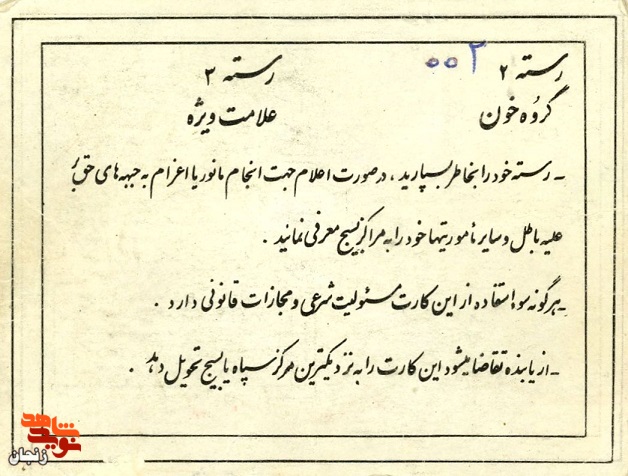 رسته ۲ ۰۰۲ رسته ۳
گروه خون علامت ویژه
- رسته خود را بخاطر بسپارید ، در صورت اعلام جهت انجام مانور یا اعزام به جبهه های حق
علیه باطل و سایر مأموریتها خود را به مراکز بسیج معرفی نمائید .
- هرگونه سوء استفاده از این کارت مسئولیت شرعی و مجازات قانونی دارد .
- از یابنده تقاضا میشود این کارت را به نزدیکترین مرکز سپاه یا بسیج تحویل دهد .
نوید شاهد
زنجان